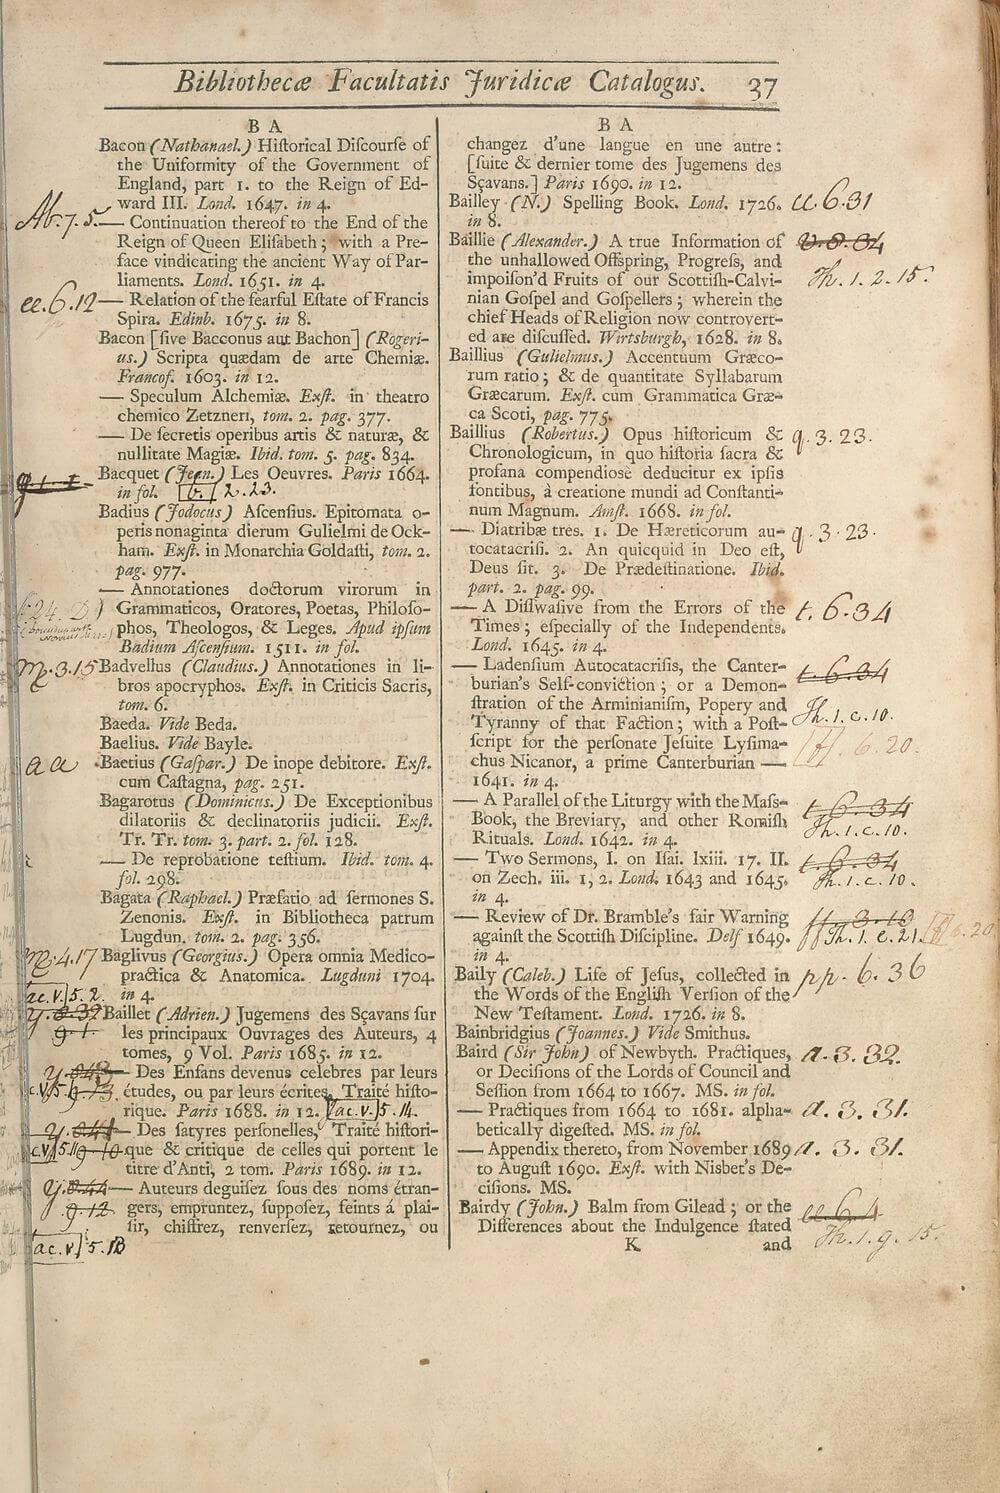 Bibliothecæ Facultatis Juridicæ Catalogus. 37
B A
Bacon (Nathanael.) Hiſtorical Diſcourſe of
the Uniformity of the Government of
England, part 1. to the Reign of Ed-
ward III. Lond. 1647. in 4.
Ab.7.5. — Continuation thereof to the End of the
Reign of Queen Eliſabeth ; with a Pre-
face vindicating the ancient Way of Par-
liaments. Lond. 1651. in 4.
ee.6.12 — Relation of the fearful Eſtate of Francis
Spira. Edinb. 1675. in 8.
Bacon [ſive Bacconus aut Bachon] (Rogeri-
us.) Scripta quædam de arte Chemiæ.
Francof. 1603. in 12.
— Speculum Alchemiæ. Exſt. in theatro
chemico Zetzneri, tom. 2. pag. 377.
— De ſecretis operibus artis & naturæ, &
nullitate Magiæ. Ibid. tom. 5. pag. 834.
Bacquet (Jean.) Les Oeuvres. Paris 1664.
in fol. b. 2.23.
Badius (Jodocus) Aſcenſius. Epitomata o-
peris nonaginta dierum Gulielmi de Ock-
ham. Exſt. in Monarchia Goldaſti, tom. 2.
pag. 977.
— Annotationes doctorum virorum in
Grammaticos, Oratores, Poetas, Philoſo-
phos, Theologos, & Leges. Apud ipſum
Badium Aſcenſium. 1511. in fol.
m.3.15 Badvellus (Claudius.) Annotationes in li-
bros apocryphos. Exſt. in Criticis Sacris,
tom. 6.
Baeda. Vide Beda.
Baelius. Vide Bayle.
aa Baetius (Gaſpar.) De inope debitore. Exſt.
cum Caſtagna, pag. 251.
Bagarotus (Dominicus.) De Exceptionibus
dilatoriis & declinatoriis judicii. Exſt.
Tr. Tr. tom. 3. part. 2. fol. 128.
— De reprobatione teſtium. Ibid. tom. 4.
fol. 298.
Bagata (Raphael.) Præfatio ad ſermones S.
Zenonis. Exſt. in Bibliotheca patrum
Lugdun. tom. 2. pag. 356.
m.4.17 Baglivus (Georgius.) Opera omnia Medico-
practica & Anatomica. Lugduni 1704.
ac.v.5.2. in 4.
Baillet (Adrien.) Jugemens des Sçavans ſur
g.1. les principaux Ouvrages des Auteurs, 4
tomes, 9 Vol. Paris 1685. in 12.
— Des Enfans devenus celebres par leurs
études, ou par leurs écrites, Traité hiſto-
rique. Paris 1688. in 12. ac.v.5.14.
— Des ſatyres perſonelles, Traité hiſtori-
que & critique de celles qui portent le
titre d'Anti, 2 tom. Paris 1689. in 12.
y.8.44 — Auteurs deguiſez ſous des noms étran-
g.12 gers, empruntez, ſuppoſez, feints á plai-
ſir, chiffrez, renverſez, retournez, ou
ac.v.5.13
B A
changez d'une langue en une autre :
[ſuite & dernier tome des Jugemens des
Sçavans.] Paris 1690. in 12.
Bailley (N.) Spelling Book. Lond. 1726. cc.6.31
in 8.
Baillie (Alexander.) A true Information of
the unhallowed Offſpring, Progreſs, and
impoiſon'd Fruits of our Scottiſh-Calvi- Th.1.2.15.
nian Goſpel and Goſpellers ; wherein the
chief Heads of Religion now controvert-
ed are diſcuſſed. Wirtsburgh, 1628. in 8.
Baillius (Gulielmus.) Accentuum Græco-
rum ratio ; & de quantitate Syllabarum
Græcarum. Exſt. cum Grammatica Græ-
ca Scoti, pag. 775.
Baillius (Robertus.) Opus hiſtoricum & q.3.23.
Chronologicum, in quo hiſtoria ſacra &
profana compendiosè deducitur ex ipſis
fontibus, à creatione mundi ad Conſtanti-
num Magnum. Amſt. 1668. in fol.
— Diatribæ tres. 1. De Hæreticorum au- q.3.23.
tocatacriſi. 2. An quicquid in Deo eſt,
Deus ſit. 3. De Prædeſtinatione. Ibid.
part. 2. pag. 99.
— A Diſſwaſive from the Errors of the t.6.34
Times ; eſpecially of the Independents.
Lond. 1645. in 4.
— Ladenſium Autocatacriſis, the Canter- t.6.34
burian's Self-conviction ; or a Demon-
ſtration of the Arminianiſm, Popery and Th.1.c.10.
Tyranny of that Faction ; with a Poſt-
ſcript for the perſonate Jeſuite Lyſima- ff.6.20.
chus Nicanor, a prime Canterburian —
1641. in 4.
— A Parallel of the Liturgy with the Maſs- t.6.34
Book, the Breviary, and other Romiſh Th.1.c.10.
Rituals. Lond. 1642. in 4.
— Two Sermons, I. on Iſai. lxiii. 17. II. t.6.34
on Zech. iii. 1, 2. Lond. 1643 and 1645. Th.1.c.10.
in 4.
— Review of Dr. Bramble's fair Warning ff.3.10
againſt the Scottiſh Diſcipline. Delf 1649. Th.1.c.21. ff 6.20
in 4.
Baily (Caleb.) Life of Jeſus, collected in pp.6.36
the Words of the Engliſh Verſion of the
New Teſtament. Lond. 1726. in 8.
Bainbridgius (Joannes.) Vide Smithus.
Baird (Sir John) of Newbyth. Practiques, a.3.32.
or Deciſions of the Lords of Council and
Seſſion from 1664 to 1667. MS. in fol.
— Practiques from 1664 to 1681. alpha- a.3.31.
betically digeſted. MS. in fol.
— Appendix thereto, from November 1689 a.3.31.
to Auguſt 1690. Exſt. with Nisbet's De-
ciſions. MS.
Bairdy (John.) Balm from Gilead ; or the ee.6.4
Differences about the Indulgence ſtated Th.1.g.15.
K and